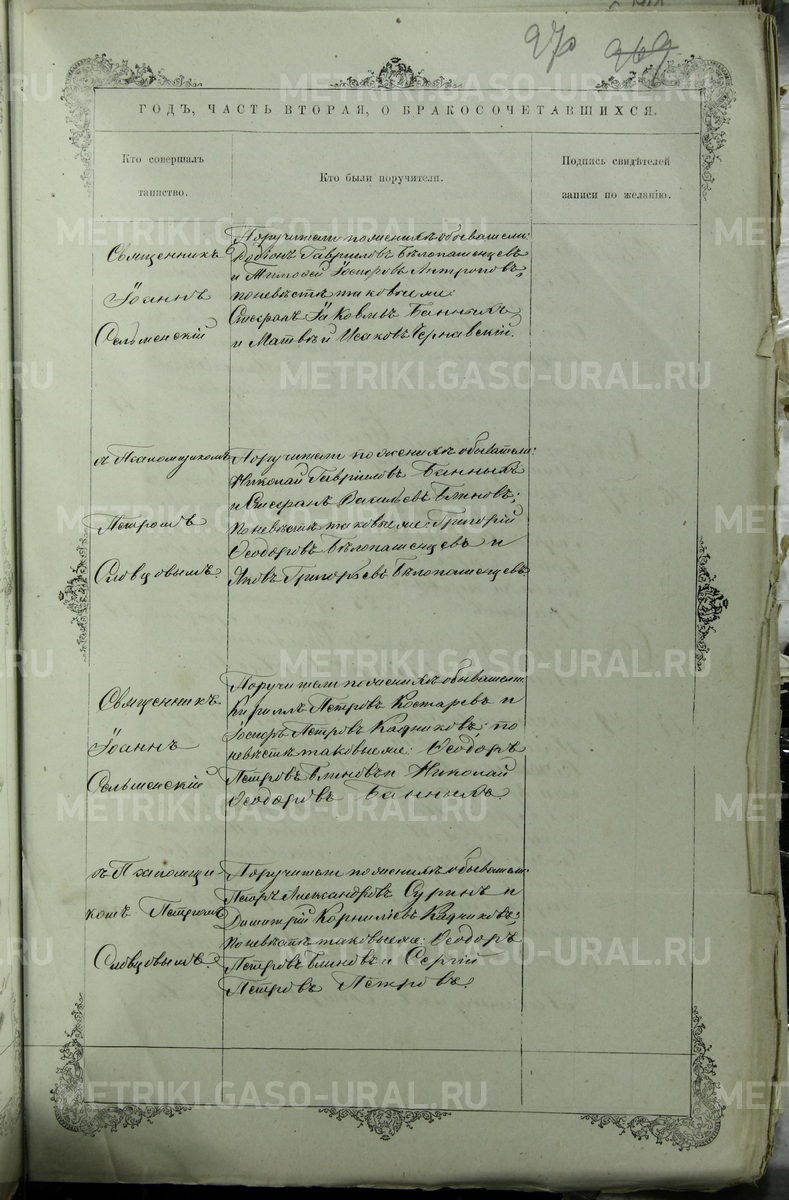 270 269
ГОДЪ, ЧАСТЬ ВТОРАЯ, О БРАКОСОЧЕТАВШИХСЯ.
Кто совершалъ
таинство.
Кто были поручители.
Подпись свидѣтелей
записи по желанію.
Священникъ
Іоаннъ
Сельменскій
Поручители по женихѣ обыватели:
Родіонъ Гавриловъ Бѣлопашенцевъ
и Тимофей Іосифовъ Антроповъ,
по невѣстѣ таковыеже:
Стефанъ Іаковлевъ Банныхъ
и Матвѣй Исаковъ Чернавскій.
съ Псаломщикомъ
Петромъ
Словцовымъ.
Поручители по женихѣ обыватели:
Николай Гавриловъ Банныхъ
и Стефанъ Васильевъ Блиновъ;
по невѣстѣ таковыеже: Григорій
Ѳеодоровъ Бѣлопашенцевъ и
Яковъ Григорьевъ Бѣлопашенцевъ
Священникъ
Іоаннъ
Сельменскій
Поручители по женихѣ обыватели:
Кириллъ Петровъ Костаревъ и
Іосифъ Петровъ Кадниковъ; по
невѣстѣ таковыеже: Ѳеодоръ
Петровъ Блиновъ и Николай
Ѳеодоровъ Банныхъ.
съ Псаломщи-
комъ Петромъ
Словцовымъ.
Поручители по женихѣ обыватели:
Петръ Александровъ Суринъ и
Димитрій Корниліевъ Кадниковъ;
по невѣстѣ таковыеже: Ѳеодоръ
Петровъ Блиновъ и Сергій
Петровъ Петровъ.
METRIKI.GASO-URAL.RU